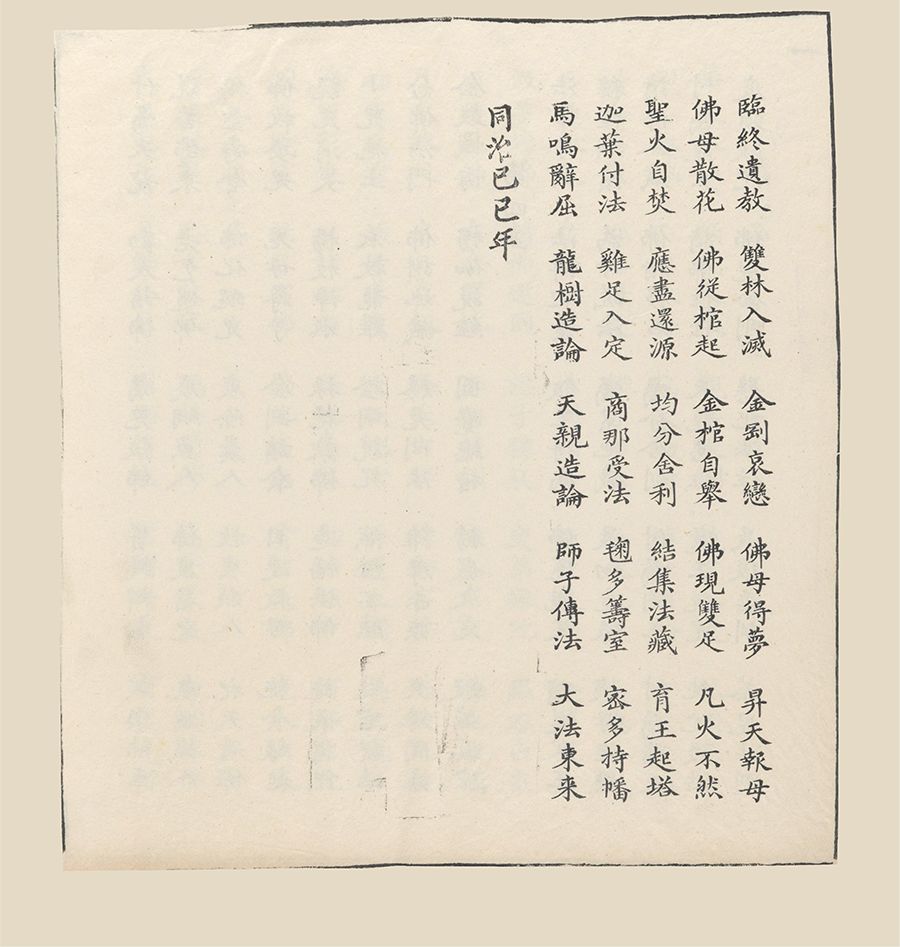 臨終遺教 雙林入滅 金剛哀戀 佛母得夢 昇天報母
佛母散花 佛從棺起 金棺自舉 佛現雙足 凡火不然
聖火自焚 應盡還源 均分舍利 結集法藏 育王起塔
迦葉付法 雞足入定 商那受法 毱多籌室 密多持幡
馬鳴辭屈 龍樹造論 天親造論 師子傳法 大法東来
同治己巳年